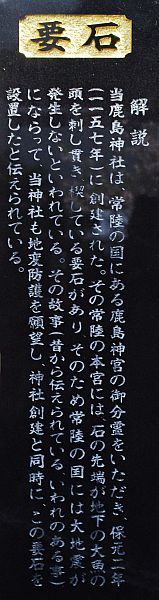 要石
解説
当鹿島神社は、常陸の国にある鹿島神宮の御分霊をいただき、保元二年
(一一五七年)に創建された。その常陸の本宮には、石の先端が地下の大魚の
頭を刺し貫き、楔している要石があり、そのため常陸の国には大地震が
発生しないといわれている。その故事(昔から伝えられている、いわれのある事)
にならって、当神社も地変防護を願望し、神社創建と同時に、この要石を
設置したと伝えられている。